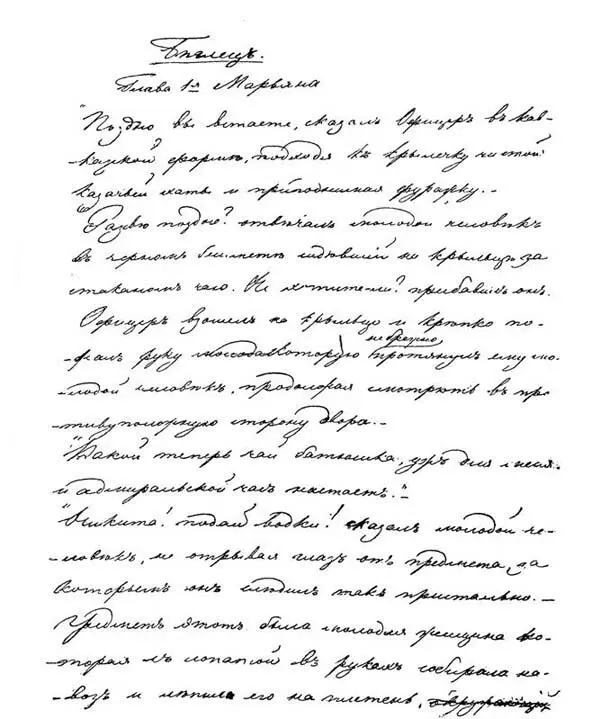 Бѣглецъ.
Глава 1я Марьяна
"Поздно вы встаете, сказалъ Офицеръ въ кав-
казской формѣ, подходя къ крылечку чистой
казачьей хаты и приподнимая фуражку. –
"Развѣ поздно? отвѣчалъ молодой человѣкъ
въ черномъ бешметѣ сидѣвшій на крыльцѣ за
стаканомъ чаю. Не хотите ли? прибавилъ онъ.
Офицеръ взошелъ на крыльцо и крѣпко по-
небрежно
жалъ руку которую протянулъ ему мо-
лодой человѣкъ, продолжая смотрѣть въ про-
тивуположную сторону двора. –
"Какой теперь чай батюшка, ужъ для меня
и адмиральской часъ настаетъ." –
"Никита! подай водки! сказалъ молодой че-
ловѣкъ, не отрывая глазъ отъ предмета, за
которымъ онъ слѣдилъ такъ пристально. –
Предметъ этотъ была молодая женщина ко-
торая съ лопатой въ рукахъ собирала на-
возъ и лѣпила его на плетень,